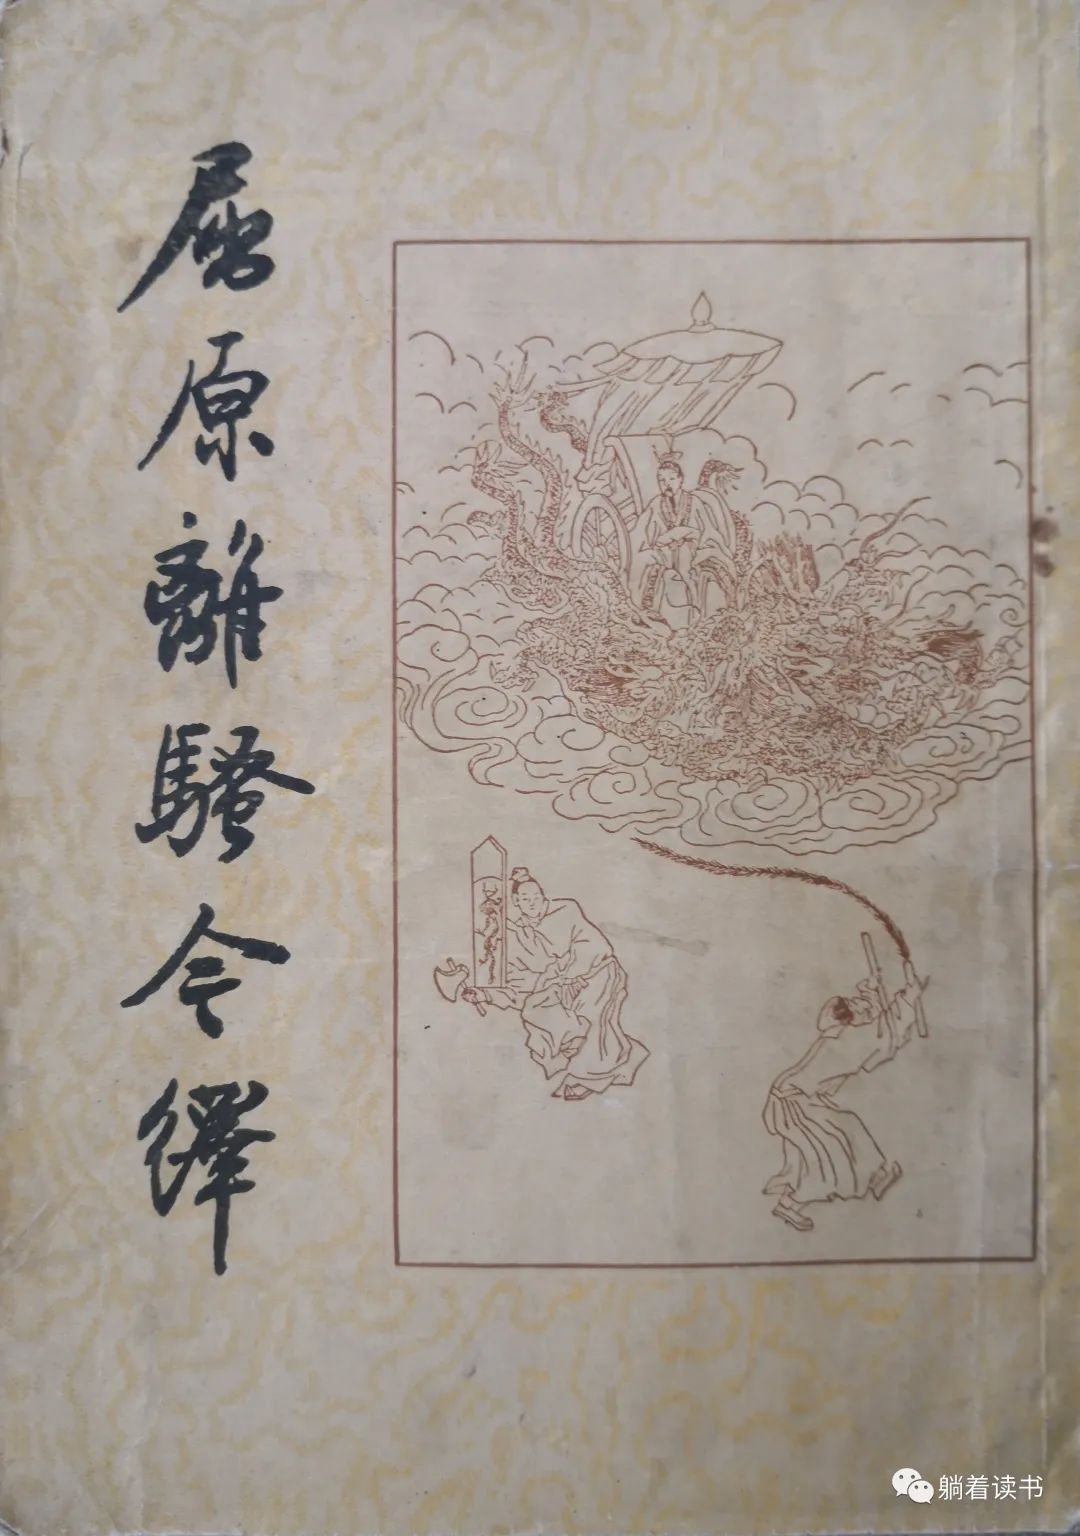 屈原離騷今繹
躺着读书